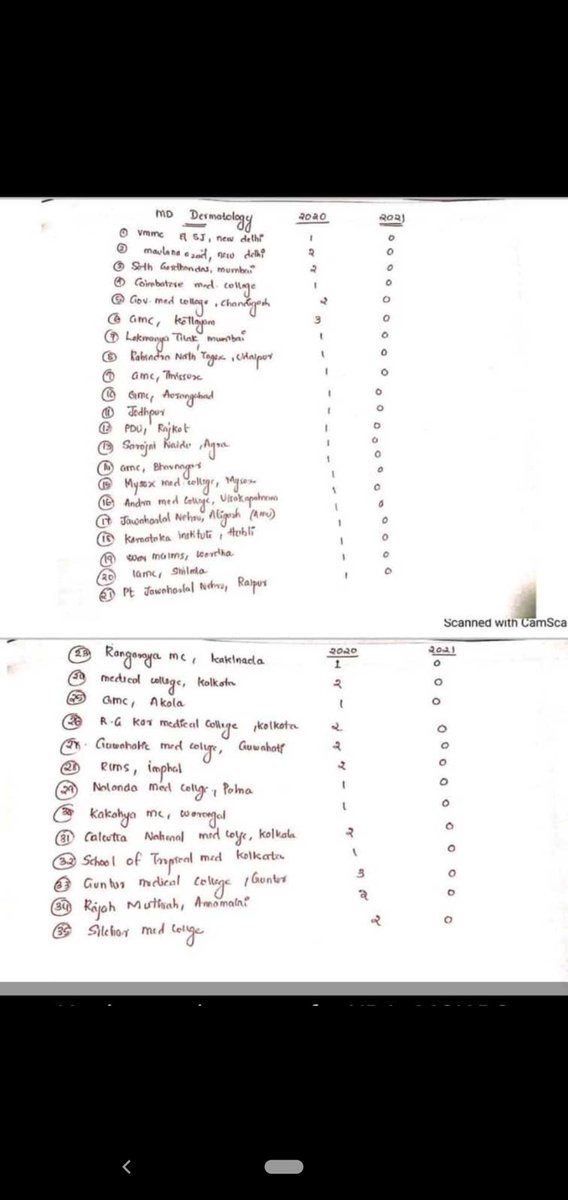 MD Dermatology 2020 2021
① vmmc & SJ, new delhi 1 0
② maulana azad, new delhi 2 0
③ Seth Gosthandas, mumbai 2 0
④ Coimbatore med. college 1 0
⑤ Gov. med college, Chandigarh 2 0
⑥ GMC, Kottayam 3 0
⑦ Lokmanya Tilak mumbai 1 0
⑧ Rabindra Nath Tagore, Udaipur 1 0
⑨ GMC, Thrissore 1 0
⑩ GMC, Aurangabad 1 0
⑪ Jodhpur 1 0
⑫ PDU, Rajkot 1 0
⑬ Sarojni Naidu, Agra 1 0
⑭ GMC, Bhavnagar 1 0
⑮ Mysor med college, Mysor 1 0
⑯ Andra med College, Visakapatnam 1 0
⑰ Jawaharlal Nehru, Aligarh (AMU) 1 0
⑱ Karnataka institute, Hubli 1 0
⑲ MGIMS, wardha 1 0
⑳ IGMC, Shimla 1 0
㉑ Pt Jawaharlal Nehru, Raipur
Scanned with CamSca
2020 2021
Rangaraya mc, kakinada 1 0
medical college, Kolkata 2 0
㉕ GMC, Akola 1 0
㉖ R.G Kar medical college, kolkata 2 0
Guwahati med colyge, Guwahati 2 0
㉘ RIMS, imphal 2 0
㉙ Nalanda med collge, Patna 1 0
㉚ Kakahya mc, warangal 1 0
㉛ Calcutta National med colge, kolkata 2 0
㉜ School of Tropical med kolkata 1 0
㉝ Guntur medical college, Guntur 3 0
㉞ Rajah Muthiah, Annamalai 2 0
㉟ Silchar med collge 2 0